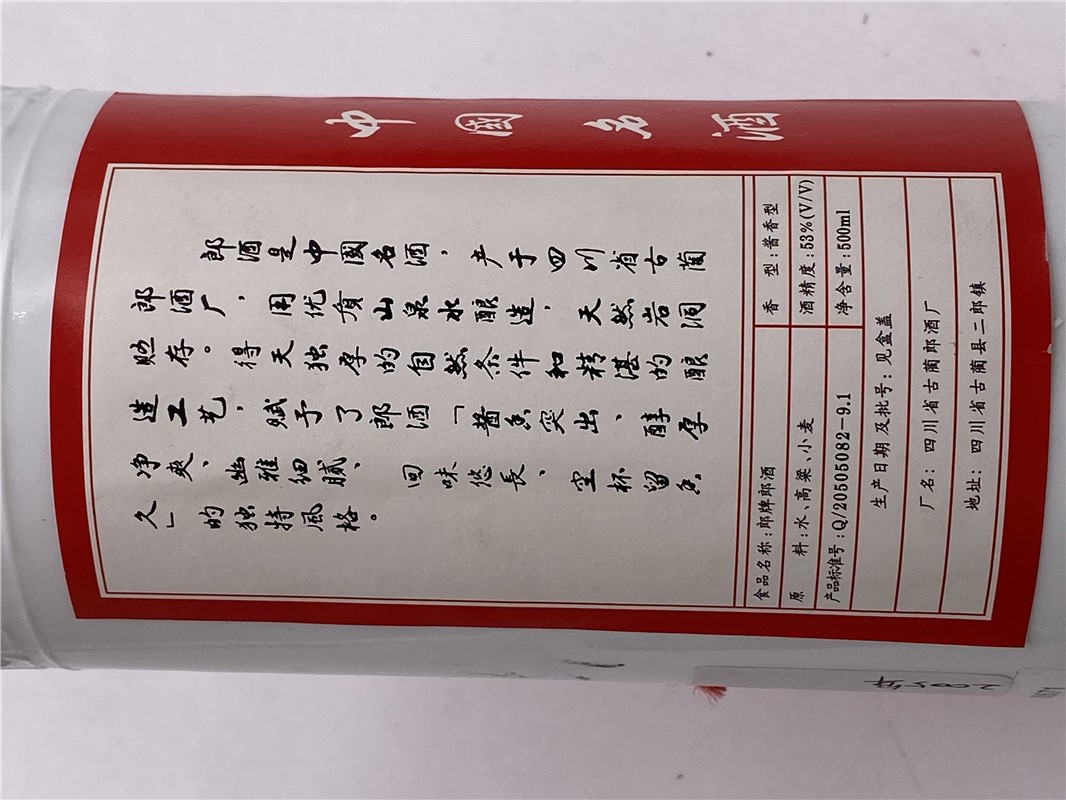 中國名酒
郎酒是中國名酒，产于四川省古蔺
郎酒厂，用优质山泉水酿造，天然岩洞
贮存。得天独厚的自然条件和精湛的酿
造工艺，赋予了郎酒「酱香突出、醇厚
净爽、幽雅细腻、回味悠長、空杯留香
久」的独特風格。
食品名称:郎牌郎酒 香 型:酱香型
原 料:水、高粱、小麦 酒精度:53%(V/V)
产品标准号:Q/20505082-9.1 净含量:500ml
生产日期及批号: 见盒盖
厂名: 四川省古蔺郎酒厂
地址: 四川省古蔺县二郎镇
2005年